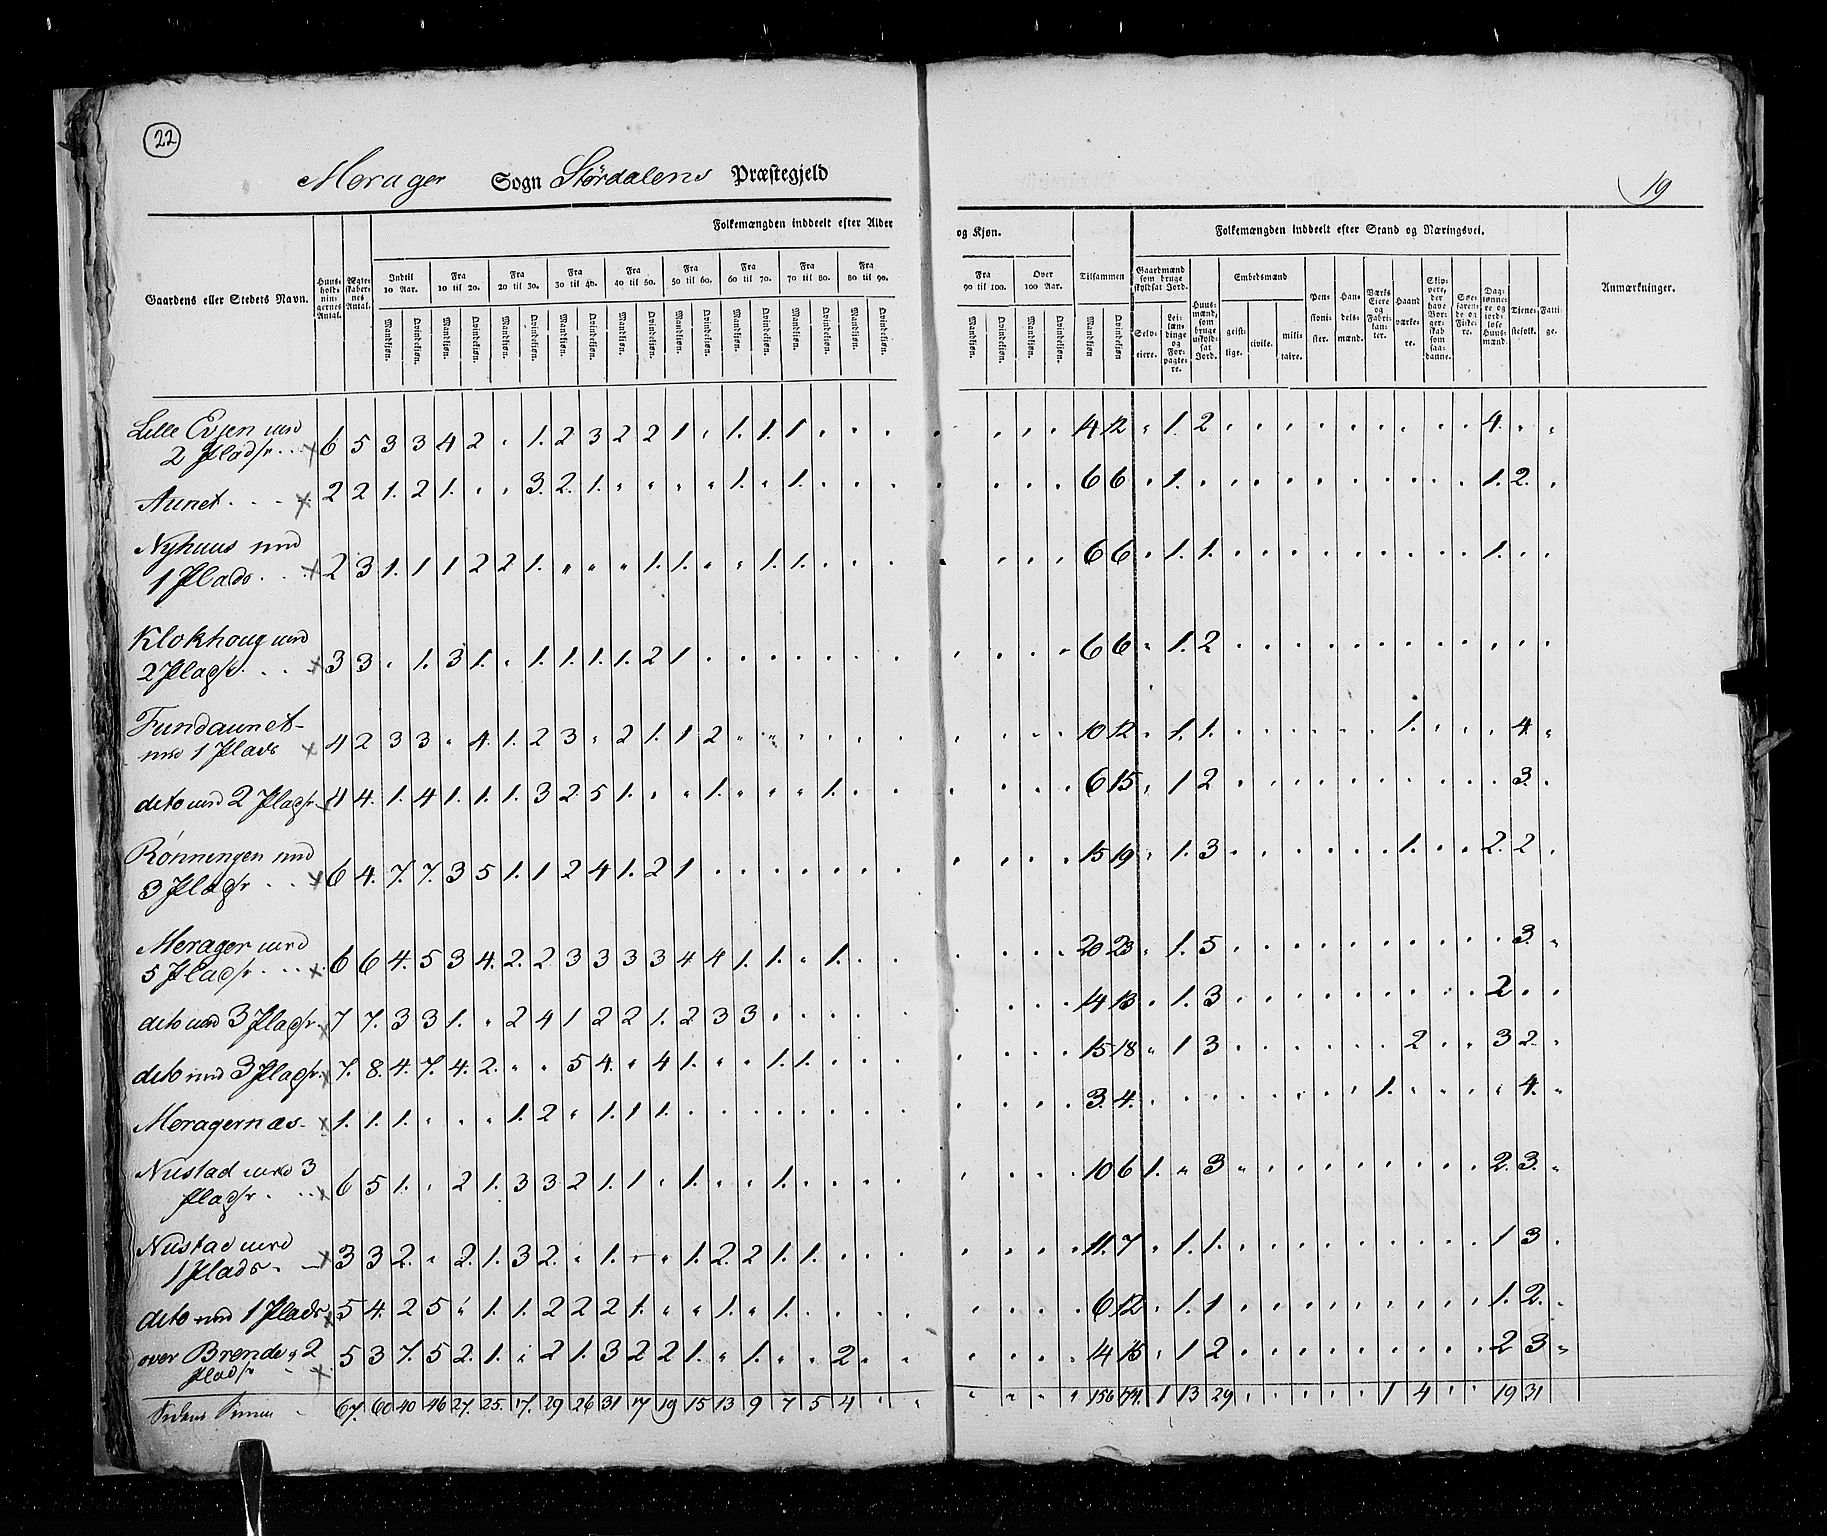 22
Merager Sogn Størdalens Præstegjeld
19
Folkemængden inddeelt efter Alder
og Kjøn.
Folkemængden inddeelt efter Stand og Næringsvei.
Gaardens eller Stedets Navn.
Huus-hold-nin-gernes Antal.
Ægte-skaber-nes Antal.
Indtil 10 Aar.
Fra 10 til 20.
Fra 20 til 30.
Fra 30 til 40.
Fra 40 til 50.
Fra 50 til 60.
Fra 60 til 70.
Fra 70 til 80.
Fra 80 til 90.
Fra 90 til 100.
Over 100 Aar.
Tilsammen
Mandkjøn. Qvindekjøn.
Gaardmænd som bruge skyldsat Jord.
Selv-eiere.
Lei-læn-dinge og For-pagte-re.
Huus-mænd, som bruge uskyld-sat Jord.
Embedsmænd
geist-lige.
civile.
mili-taire.
Pen-sioni-ster.
Han-dels-mænd.
Værks Eiere og Fabri-kan-ter.
Haand værke-re.
Skip-pere, der have Bor-ger-skab som saa-danne.
Søe-farende og Fiske-re.
Dag-lønne-re og jord-løse Huus-mænd.
Tjene-stefolk.
Fatti-ge.
Anmærkninger.
Lille Evjen med
2 Pladse x 6 5 3 3 4 2 . 1. 2 3 2 2 1 . 1. 1. 1 4 12 1. 2 4.
Aunet x 2 2 1. 2 1. . . 3. 2. 1. . . . . 1. . 1. 6 6 1. 1. 2.
Nyhuus med
1 Plads x 2 3 1. 1 1 2 2 1. " . . 1. 1. . . 1. 1. 6 6 1. 1. 1.
Klokhoug med
2 Pladse x 3 3 . 1. 3 1. . 1. 1. 1. 1. 2 1 6 6 1. 2
Fundaunet
med 1 Plads x 4 2 3 3 . 4. 1. 2 3 . 2 1. 1 2 10 12 1. 1. 1. 4
dito med 2 Pladse x 4 4. 1. 4 1. 1. 1. 3 2. 5 1. . . 1. . . . 1. 6 15 1 2 3.
Rönningen med
3 Pladse x 6 4. 7. 7. 3 5 1. 1 2 4 1. 2 1 15 19 1. 3 1. 2. 2
Merager med
5 Pladse x 6 6 4. 5 3 4. 2. 2. 3 3 3 3 4 4 1. 1. . 1. 20 23 1. 5 3.
dito med 3 Pladse x 7 7. 3 3 1. . 2 4 1 2 2 1. 2 3 3 14 13 1. 3 2
dito med 3 Pladse x 7. 8. 4. 7. 4. 2. . . 5 4. . 4 1. . . 1. 1. 15 18 1 3 2 3 2.
Meragernæs x 1. 1. 1. . . . 1. 2 . 1. 1 1. 3. 4. 1. 4.
Nustad med 3
Pladse x 6 5 1. . 2 1. 3 3 2 1. 1 . 1. . . 1. 10 6 1. . 3 2. 3.
Nustad med
1 Plads x 3 3 2. . 2. 1. 3 2. . 1. . . 1. 2. 2 1. 1. 11. 7 1. 1. 1 3
dito med 1 Plads x 5 4. 2 5 . 1. 1. 2 2 2 1. . . 1. . 1. 6 12 1. 1 1. 2.
over Brende, 2
Pladse x 5 3 7. 5 2. 1. . 2 1. 3 2 2 1. . 1. . . 2 4 15 1 2 2 3
Sidens Summa 67. 60 40 46 27. 25. 17. 29 26 31 17 19 15 13 9 7 5 4 156 174. 1 13 29 1 4 19 31